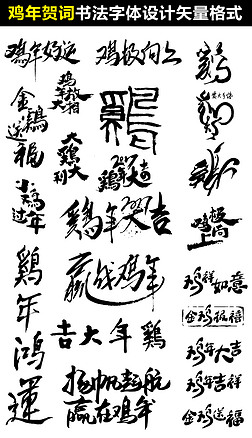 鸡年贺词书法字体设计矢量格式
鸡年好运
鸡极向上
鷄
金鷄
送福
鸡年
大吉
大鷄大利
鷄
小鸡过年
鸡年大吉
鷄年大吉
鸡极向上
鷄年鸿運
赢战鸡年
鸡祥如意
金鸡报福
吉大年鷄
鸡年大吉
鸡年吉祥
扬帆起航
赢在鸡年
金鸡送福